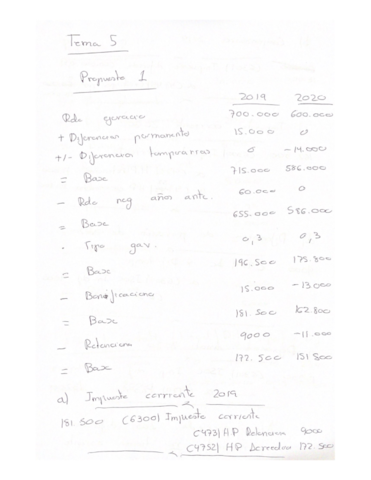 Tema 5
Propuesta 1
2019 2020
Rdo ejercicio 700.000 600.000
+ Diferencias permanentes 15.000 0
+/- Diferencias temporarias 0 -14.000
= Base 715.000 586.000
- Rdo neg años ant. 60.000 0
= Base 655.000 586.000
· Tipo gav. 0,3 0,3
= Base 196.500 175.800
- Bonificaciones 15.000 -13.000
= Base 181.500 162.800
- Retenciones 9000 -11.000
= Base 172.500 151800
a) Impuesto corriente 2019
181.500 (6300) Impuesto corriente
(473) H.P Retenciones 9000
(4752) HP Acreedora 172.500